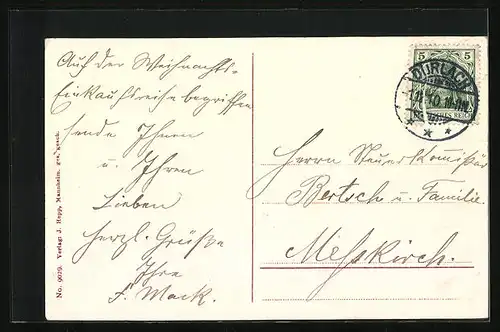 Auf der Weihnachts-
Einkaufsreise begriffen
sende Ihnen
u. Ihren
Lieben
herzl. Grüße
Ihre
F. Mack.
No. 9029. Verlag: J. Hepp, Mannheim. ges. gesch.
5 5
DURLACH
REICH
Herrn Steuerkommissär
Bertsch u. Familie
Meßkirch.